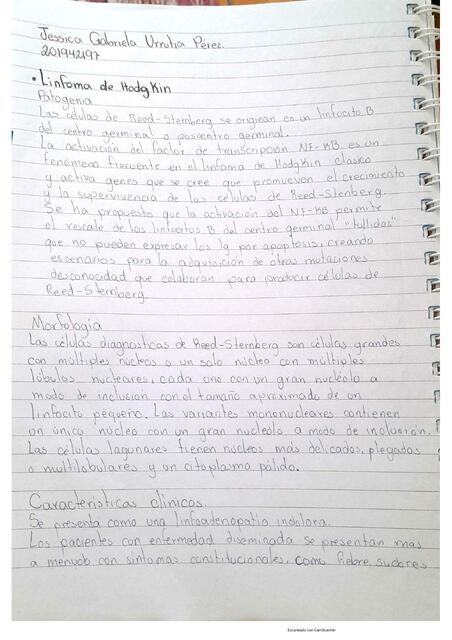 Jessica Gabriela Urrutia Pérez.
201942197
• Linfoma de Hodgkin
Patogenia
Las células de Reed-Sternberg se originan en un linfocito B
del centro germinal o poscentro germinal.
La activación del factor de transcripción NF-KB es un
fenómeno frecuente en el linfoma de Hodgkin clásico
y activa genes que se cree que promueven el crecimiento
y la supervivencia de las células de Reed-Stenberg.
Se ha propuesto que la activación del NF-KB permite
el rescate de los linfocitos B del centro germinal "tullidos"
que no pueden expresar los Ig por apoptosis, creando
escenarios para la adquisición de otras mutaciones
desconocidad que colaboran para producir células de
Reed-Sternberg.
Morfología
Las células diagnosticas de Reed-Sternberg son células grandes
con múltiples núcleos o un solo núcleo con múltiples
lóbulos nucleares, cada uno con un gran nucléolo a
modo de inclusión con el tamaño aproximado de un
linfocito pequeño. Las variantes mononucleares contienen
un único núcleo con un gran nucleolo a modo de inclusión.
Las células lagunares tienen núcleos más delicados, plegados
o multilobulares y un citoplasma pálido.
Caracteristicas clínicos.
Se presenta como una linfoadenopatía indolora.
Los pacientes con enfermedad diseminada se presentan mas
a menudo con síntomas constitucionales, como fiebre, sudores
Escaneado con CamScanner